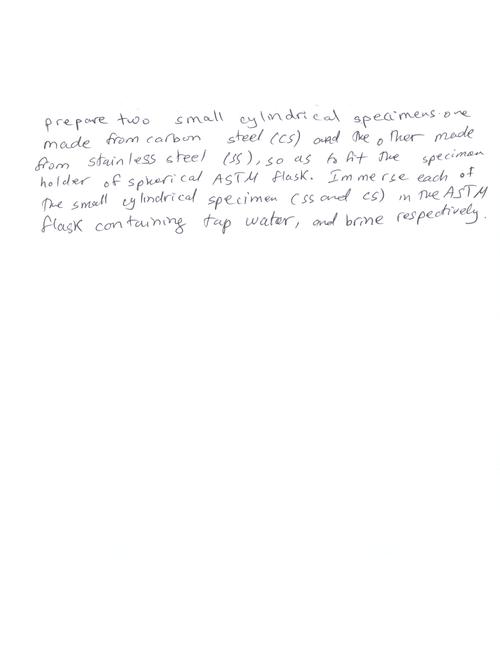 prepare two small cylindrical specimens. one
made from carbon steel (CS) and the other made
from stainless steel (SS), so as to fit the specimen
holder of spherical ASTM flask. Immerse each of
the small cylindrical specimen (SS and CS) in the ASTM
flask containing tap water, and brine respectively.